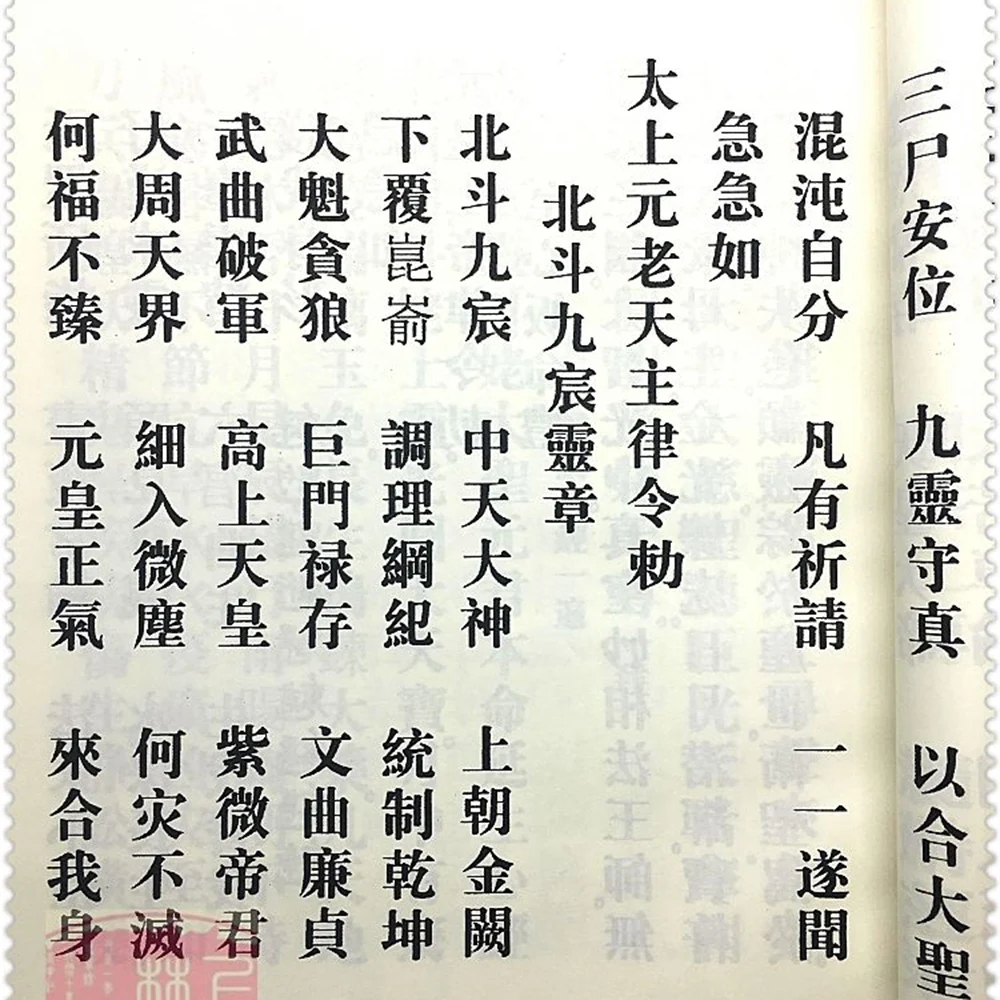 三尸安位　九靈守真　以合大聖
混沌自分　凡有祈請　一一遂聞
急急如
太上元老天主律令勅
北斗九宸靈章
北斗九宸　中天大神　上朝金闕
下覆崑崙　調理綱紀　統制乾坤
大魁貪狼　巨門禄存　文曲廉貞
武曲破軍　高上天皇　紫微帝君
大周天界　細入微塵　何灾不滅
何福不臻　元皇正氣　來合我身